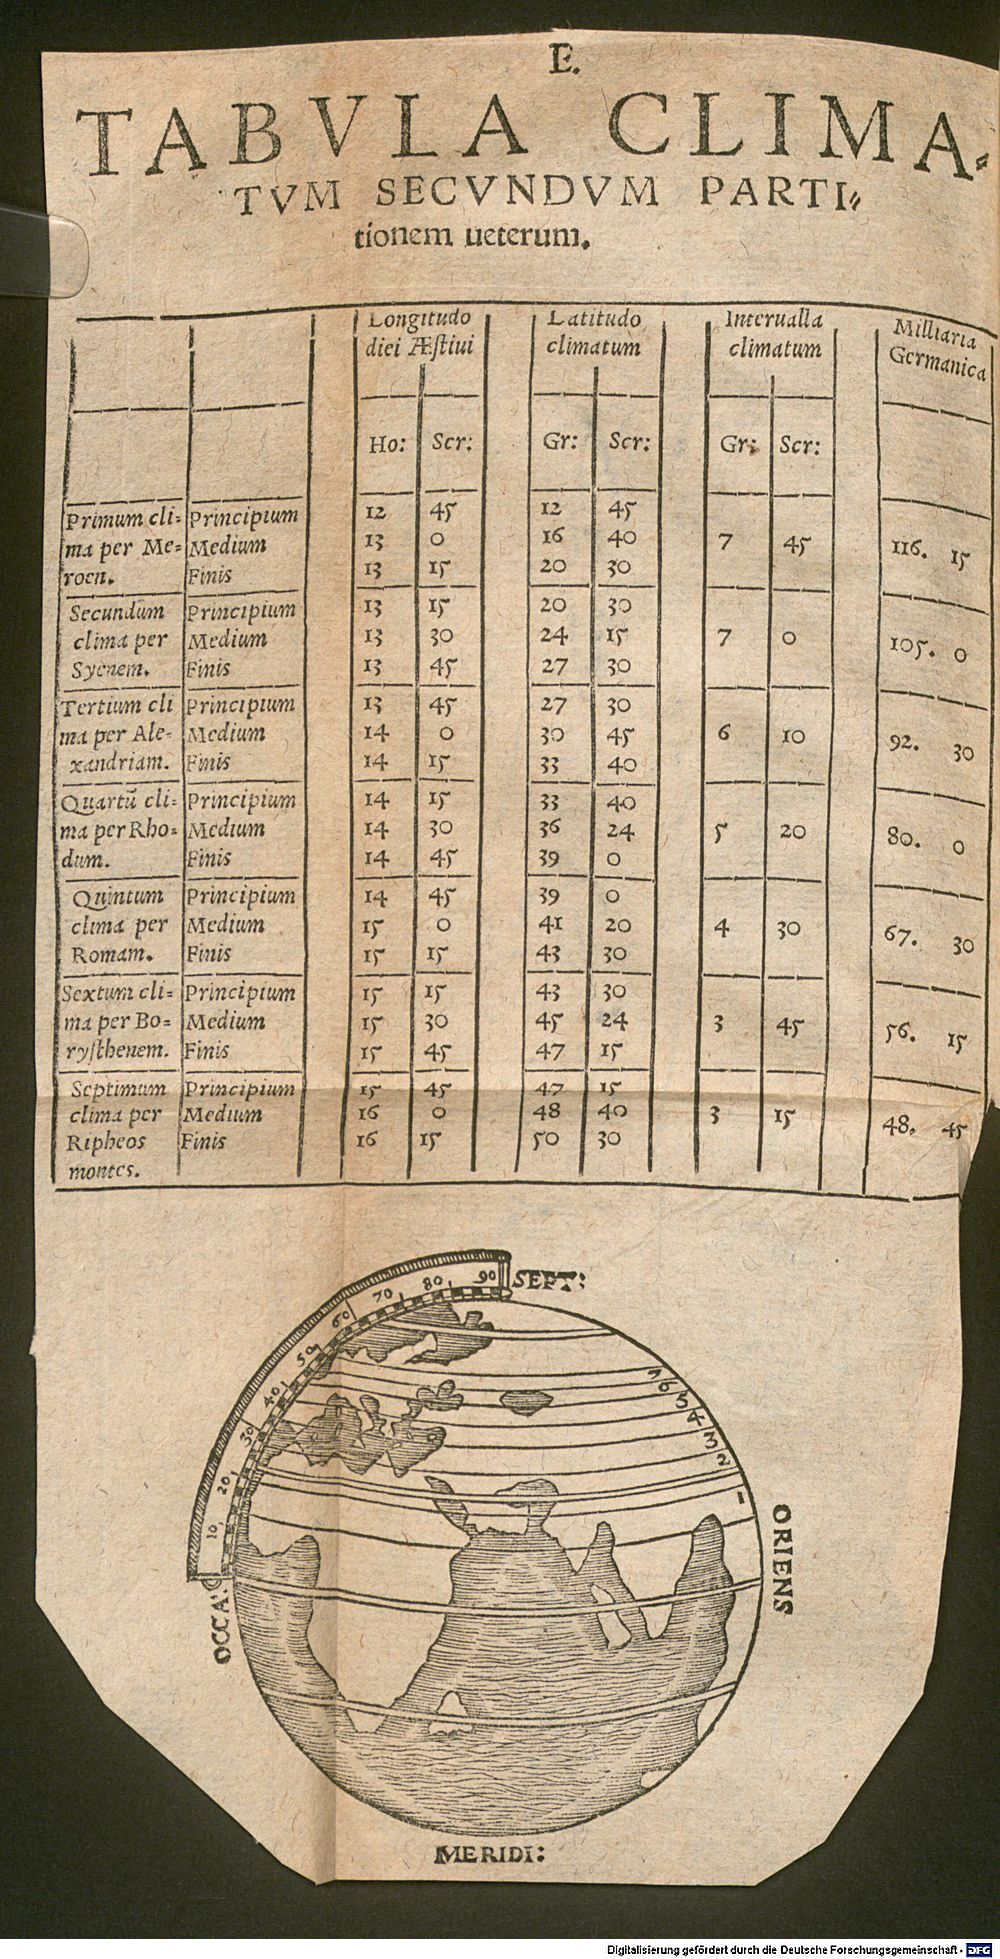 E.
TABVLA CLIMA⸗
TVM SECVNDVM PARTI⸗
tionem ueterum.
Longitudo diei Æstiui | Latitudo climatum | Interualla climatum | Milliaria Germanica
Ho: Scr: | Gr: Scr: | Gr: Scr:
Primum cli⸗ Principium 12 45 12 45
ma per Me⸗ Medium 13 0 16 40 7 45 116. 15
roen. Finis 13 15 20 30
Secundum Principium 13 15 20 30
clima per Medium 13 30 24 15 7 0 105. 0
Syenem. Finis 13 45 27 30
Tertium cli Principium 13 45 27 30
ma per Ale⸗ Medium 14 0 30 45 6 10 92. 30
xandriam. Finis 14 15 33 40
Quartū cli⸗ Principium 14 15 33 40
ma per Rho⸗ Medium 14 30 36 24 5 20 80. 0
dum. Finis 14 45 39 0
Quintum Principium 14 45 39 0
clima per Medium 15 0 41 20 4 30 67. 30
Romam. Finis 15 15 43 30
Sextum cli⸗ Principium 15 15 43 30
ma per Bo⸗ Medium 15 30 45 24 3 45 56. 15
rysthenem. Finis 15 45 47 15
Septimum Principium 15 45 47 15
clima per Medium 16 0 48 40 3 15 48. 45
Ripheos Finis 16 15 50 30
montes.
SEPT:
90
80
70
60
50
40
30
20
10
7
6
5
4
3
2
1
ORIENS
OCCA:
MERIDI:
Digitalisierung gefördert durch die Deutsche Forschungsgemeinschaft - DFG